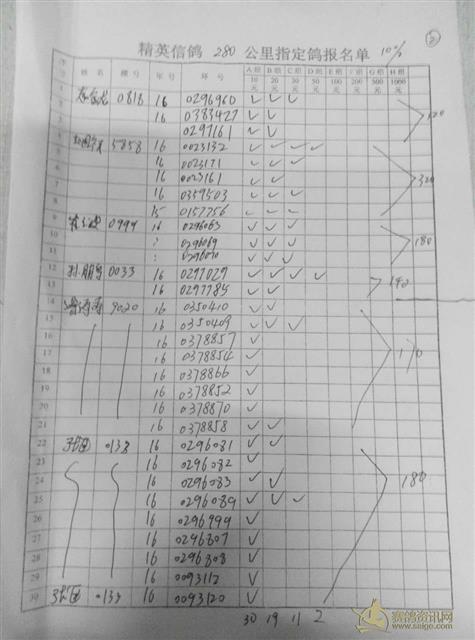 精英信鸽 280 公里指定鸽报名单 10% ②
序号 姓名 棚号 年号 环号 A组10元 B组20元 C组30元 D组50元 E组100元 F组200元 G组500元 H组1000元
1 0818 16 0296960 ✓ ✓ ✓
2 16 0383427 ✓ ✓
3 0297161 ✓ ✓
4 5858 16 0023132 ✓ ✓ ✓ ✓
5 16 0023171 ✓ ✓ ✓
6 16 0023161 ✓ ✓
7 16 0359503 ✓ ✓ ✓
8 15 0157756 ✓ ✓ ✓
320
9 16 0296063 ✓ ✓ ✓
10 ✓ ✓ ✓
11 ✓ ✓ ✓
180
12 0033 16 0297029 ✓ ✓ ✓ ✓
13 16 0297785 ✓ ✓
140
14 9020 16 0350410 ✓ ✓
15 16 0350409 ✓ ✓ ✓
16 16 0378857 ✓
17 16 0378854 ✓
18 16 0378866 ✓
19 16 0378852 ✓
20 16 0378870 ✓
21 16 0378858 ✓ ✓
170
22 0133 16 0296081 ✓ ✓
23 16 0296082 ✓
24 16 0296083 ✓ ✓
25 16 0296089 ✓ ✓ ✓
26 16 0296994 ✓
27 16 0296807 ✓
28 16 0296808 ✓
29 16 0093112 ✓
30 0133 16 0093120 ✓
180
30 19 11 2
赛鸽资讯网
www.saige.com